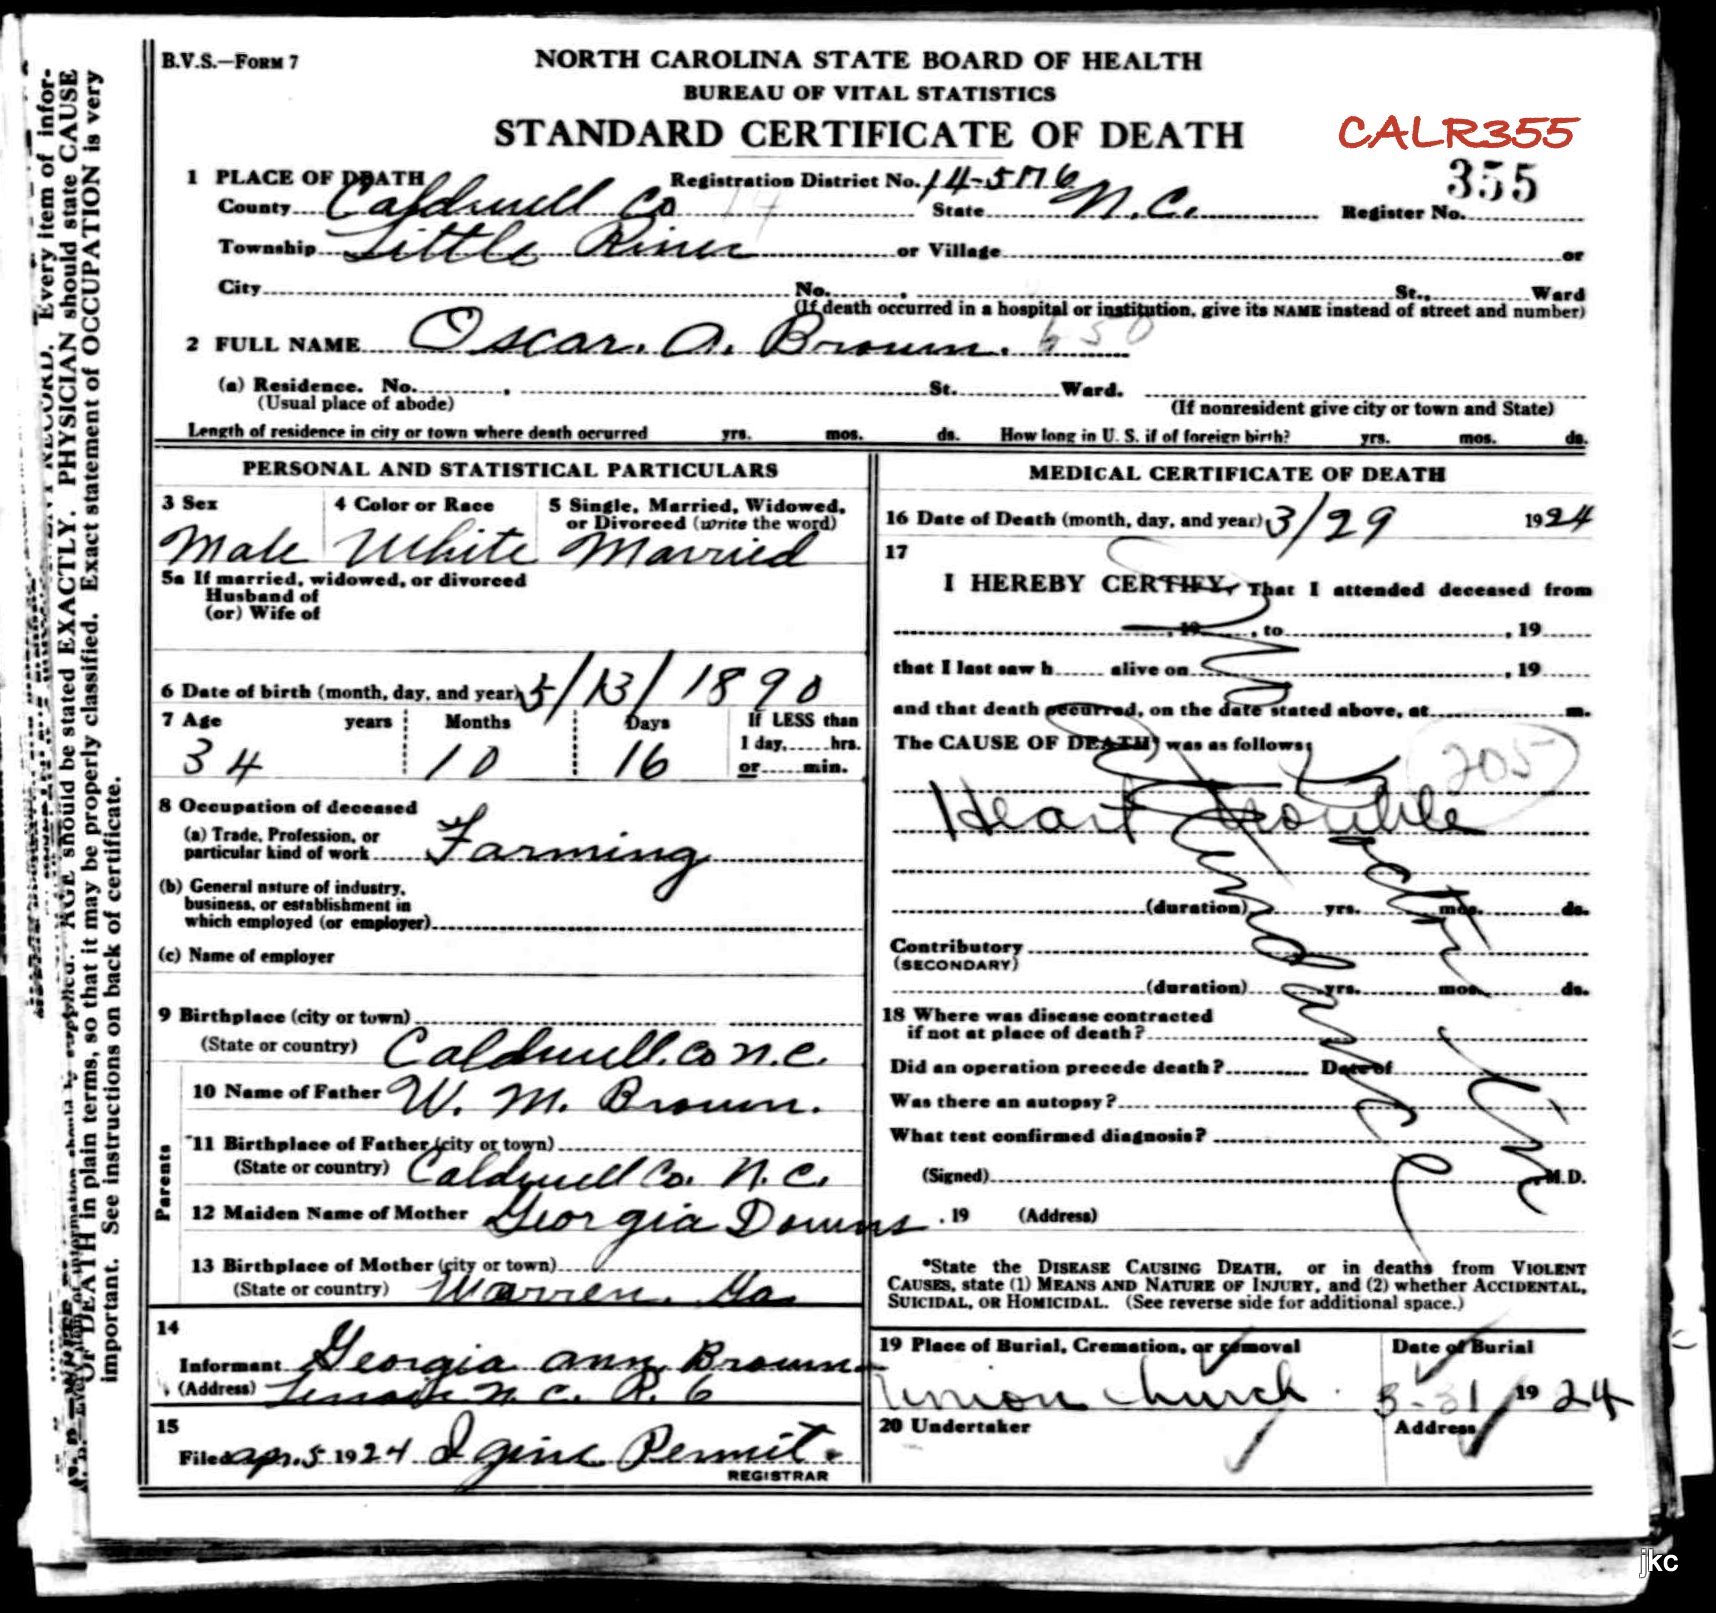 B.V.S.—FORM 7
NORTH CAROLINA STATE BOARD OF HEALTH
BUREAU OF VITAL STATISTICS
STANDARD CERTIFICATE OF DEATH
CALR355
355
1 PLACE OF DEATH Registration District No. 14-5716
County Caldwell Co 14 State N.C. Register No.
Township Little River or Village or
City No. St., Ward
(If death occurred in a hospital or institution, give its NAME instead of street and number)
2 FULL NAME Oscar. A. Brown. 650
(a) Residence. No. , St. Ward.
(Usual place of abode) (If nonresident give city or town and State)
Length of residence in city or town where death occurred yrs. mos. ds. How long in U. S. if of foreign birth? yrs. mos. ds.
PERSONAL AND STATISTICAL PARTICULARS
3 Sex 4 Color or Race 5 Single, Married, Widowed,
or Divorced (write the word)
Male White Married
5a If married, widowed, or divorced
Husband of
(or) Wife of
6 Date of birth (month, day, and year) 5/13/1890
7 Age years Months Days If LESS than
1 day, hrs.
34 10 16 or min.
8 Occupation of deceased
(a) Trade, Profession, or
particular kind of work Farming
(b) General nature of industry,
business, or establishment in
which employed (or employer)
(c) Name of employer
9 Birthplace (city or town)
(State or country) Caldwell. Co N.C.
Parents
10 Name of Father W. M. Brown.
11 Birthplace of Father (city or town)
(State or country) Caldwell Co. N.C.
12 Maiden Name of Mother Georgia Downs
13 Birthplace of Mother (city or town)
(State or country) Warren. Ga
14
Informant Georgia Ann Brown
(Address) Lenoir N.C. R. 6
15
Filed Apr. 5 1924 Permit.
REGISTRAR
MEDICAL CERTIFICATE OF DEATH
16 Date of Death (month, day, and year) 3/29 1924
17
I HEREBY CERTIFY, That I attended deceased from
, 19 , to , 19
that I last saw h alive on , 19
and that death occurred, on the date stated above, at m.
The CAUSE OF DEATH was as follows:
205
Heart trouble
(duration) yrs. mos. ds.
Contributory
(SECONDARY)
(duration) yrs. mos. ds.
18 Where was disease contracted
if not at place of death?
Did an operation precede death? Date of
Was there an autopsy?
What test confirmed diagnosis?
(Signed) M.D.
, 19 (Address)
*State the DISEASE CAUSING DEATH, or in deaths from VIOLENT
CAUSES, state (1) MEANS AND NATURE OF INJURY, and (2) whether ACCIDENTAL,
SUICIDAL, OR HOMICIDAL. (See reverse side for additional space.)
19 Place of Burial, Cremation, or removal Date of Burial
Union Church 3-31 1924
20 Undertaker Address
mation should be supplied. AGE should be stated EXACTLY. PHYSICIAN should state CAUSE
OF DEATH in plain terms, so that it may be properly classified. Exact statement of OCCUPATION is very
important. See instructions on back of certificate.
RECORD. Every item of infor-
jkc